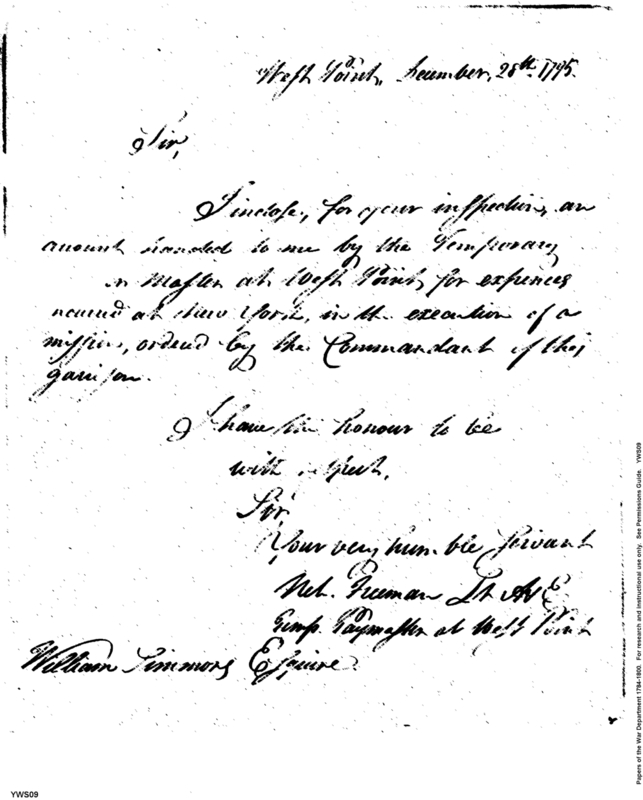 West Point, December, 28th 1795.
Sir,
I inclose, for your inspection, an
amount handed to me by the Temporary
Master at West Point, for expences
at New York, in the execution of a
mission, ordered by the Commandant of this
garrison.
I have the honour to be
with respect,
Sir,
Your very humble Servant
Net. Freeman Lt A & E
Temp. Paymaster at West Point
William Simmons Esquire
Papers of the War Department 1784-1800. For research and instructional use only. See Permissions Guide. YWS09
YWS09